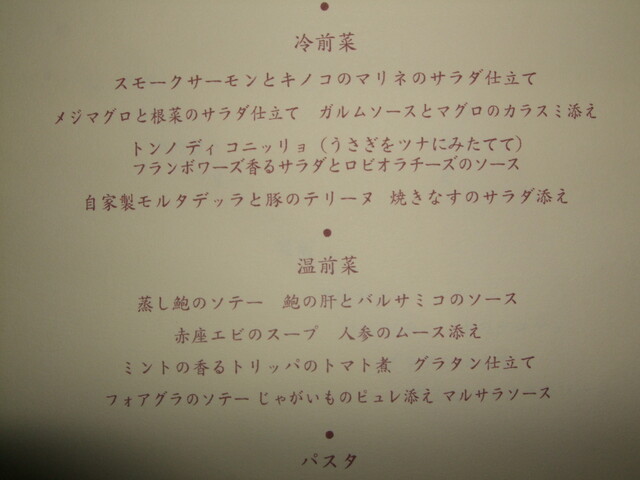 ●
冷前菜
スモークサーモンとキノコのマリネのサラダ仕立て
メジマグロと根菜のサラダ仕立て　ガルムソースとマグロのカラスミ添え
トンノ ディ コニッリョ（うさぎをツナにみたてて）
フランボワーズ香るサラダとロビオラチーズのソース
自家製モルタデッラと豚のテリーヌ　焼きなすのサラダ添え
●
温前菜
蒸し鮑のソテー　鮑の肝とバルサミコのソース
赤座エビのスープ　人参のムース添え
ミントの香るトリッパのトマト煮　グラタン仕立て
フォアグラのソテー じゃがいものピュレ添え マルサラソース
●
パスタ